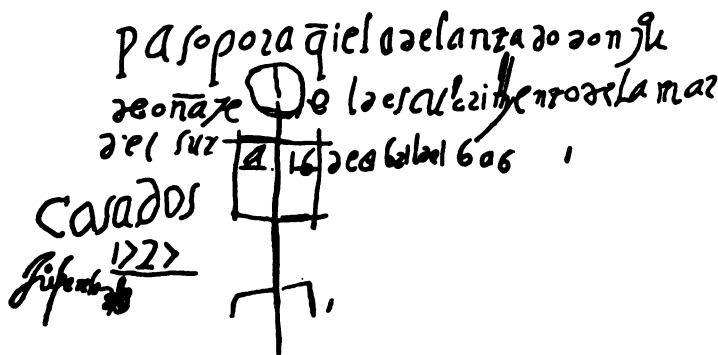 pasopora q̄iel adelantado don ju
de oñate el descubrimyento de la mar
del sur a 16 de abril del 606
Casados
1727